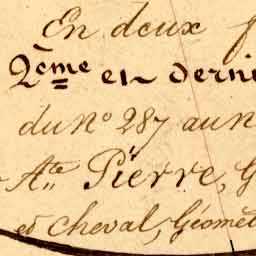 En deux f
2ème et derni
du No 287 au N
Ate Pierre, G
et Cheval, Géomèt